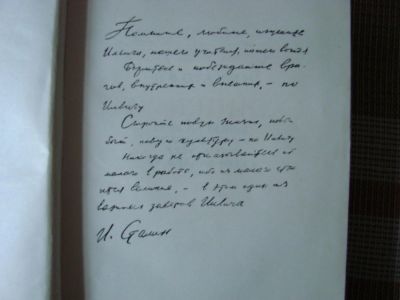 Помните, любите, изучайте
Ильича, нашего учителя, нашего вождя.
Боритесь и побеждайте вра-
гов, внутренних и внешних, – по
Ильичу.
Стройте новую жизнь, новый
быт, новую культуру – по Ильичу.
Никогда не отказывайтесь от
малого в работе, ибо из малого стро-
ится великое, – в этом один из
важных заветов Ильича
И. Сталин